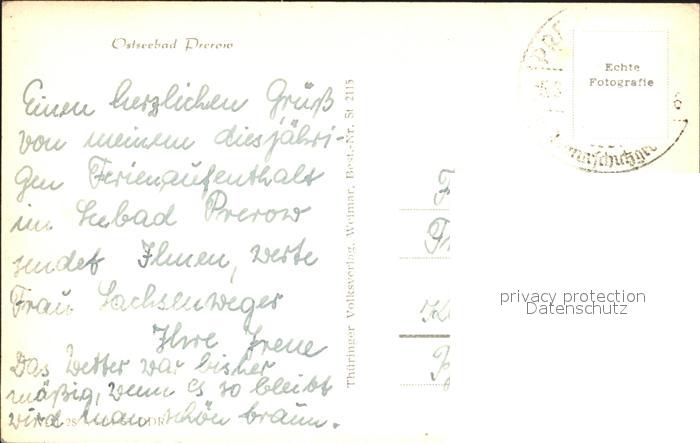 Ostseebad Prerow
Einen herzlichen Gruß
von meinem diesjähri-
gen Ferienaufenthalt
im Seebad Prerow
sendet Ihnen, werte
Frau Sachsenweger
Ihre Irene
Das Wetter war bisher
mäßig, wenn es so bleibt
wird man schön braun.
Thüringer Volksverlag, Weimar, Best.-Nr. St. 2115
Echte
Fotografie
privacy protection
Datenschutz